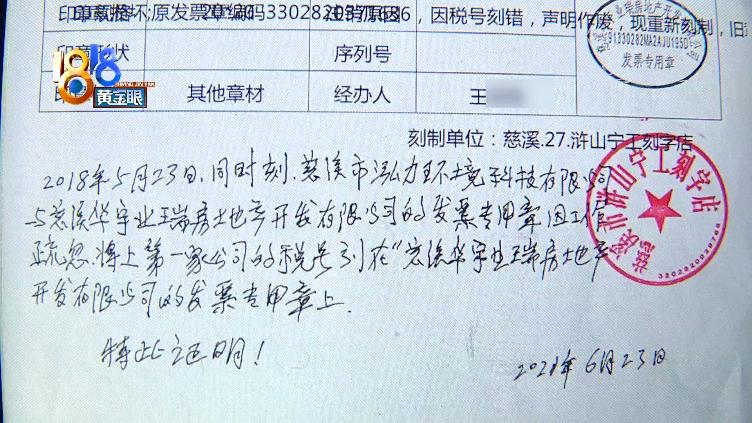 因税号刻错，声明作废，现重新刻制，旧
印章形状
序列号
其他章材
经办人
王
1818
黄金眼
刻制单位：慈溪.27.浒山宁工刻字店
发票专用章
慈溪市浒山宁工刻字店
2018年5月23日，同时刻，慈溪市泓力环境科技有限公司
与慈溪华宇业瑞房地产开发有限公司的发票专用章因工作
疏忽，将上第一家公司的税号刻在“慈溪华宇业瑞房地产
开发有限公司的发票专用章上．
特此证明！
2021年6月23日